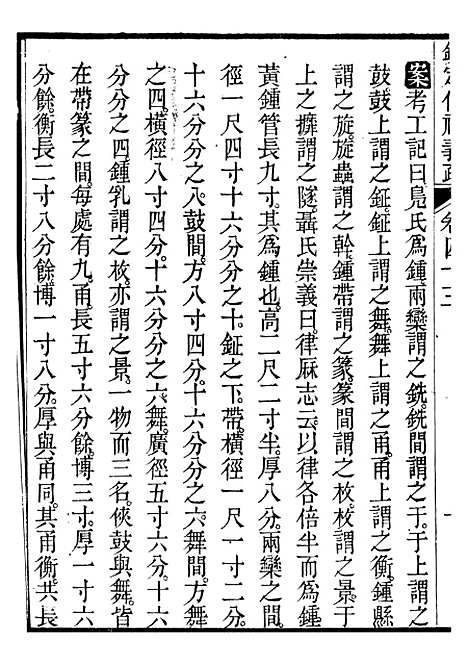 案考工記曰鳧氏爲鍾兩欒謂之銑銑間謂之于于上謂之
鼓鼓上謂之鉦鉦上謂之舞舞上謂之甬甬上謂之衡鍾縣
謂之旋旋蟲謂之幹鍾帶謂之篆篆間謂之枚枚謂之景于
上之攠謂之隧聶氏崇義曰律厤志云以律各倍半而爲鍾
黃鍾管長九寸其爲鍾也高二尺二寸半厚八分兩欒之間
徑一尺四寸十六分分之十鉦之下帶橫徑一尺一寸二分
十六分分之八鼓間方八寸四分十六分分之六舞間方舞
之四橫徑八寸四分十六分分之六舞廣徑五寸六分十六
分分之四鍾乳謂之枚亦謂之景一物而三名俠鼓與舞皆
在帶篆之間每處有九甬長五寸六分餘博三寸厚一寸六
分餘衡長二寸八分餘博一寸八分厚與甬同其甬衡共長